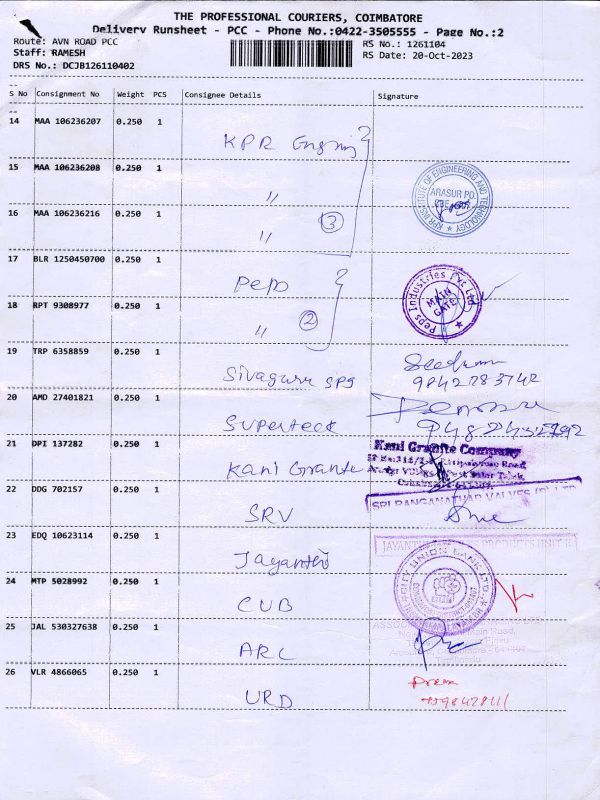 THE PROFESSIONAL COURIERS, COIMBATORE
Delivery Runsheet - PCC - Phone No.:0422-3505555 - Page No.:2
Route: AVN ROAD PCC
RS No.: 1261104
Staff: RAMESH
RS Date: 20-Oct-2023
DRS No.: DCJB126110402
S No Consignment No Weight PCS Consignee Details Signature
14 MAA 106236207 0.250 1 KPR Engring
15 MAA 106236208 0.250 1 〃
KPR INSTITUTE OF ENGINEERING AND TECHNOLOGY
ARASUR PO
16 MAA 106236216 0.250 1 〃 3
17 BLR 1250450700 0.250 1 Peps
Peps Industries Pvt Ltd
MAIN GATE
18 RPT 9308977 0.250 1 〃 2
19 TRP 6358859 0.250 1 Sivaguru SPG
9842783742
20 AMD 27401821 0.250 1 Superteck
21 DPI 137282 0.250 1 Kani Granite
Kani Granite Company
22 DDG 702157 0.250 1 SRV
SRI RANGANATHAR VALVES (P) LTD
23 EDQ 10623114 0.250 1 Jayanthi
24 MTP 5028992 0.250 1 CUB
CITY UNION BANK LTD.
25 JAL 530327638 0.250 1 ARC
26 VLR 4866065 0.250 1 URD
Prem